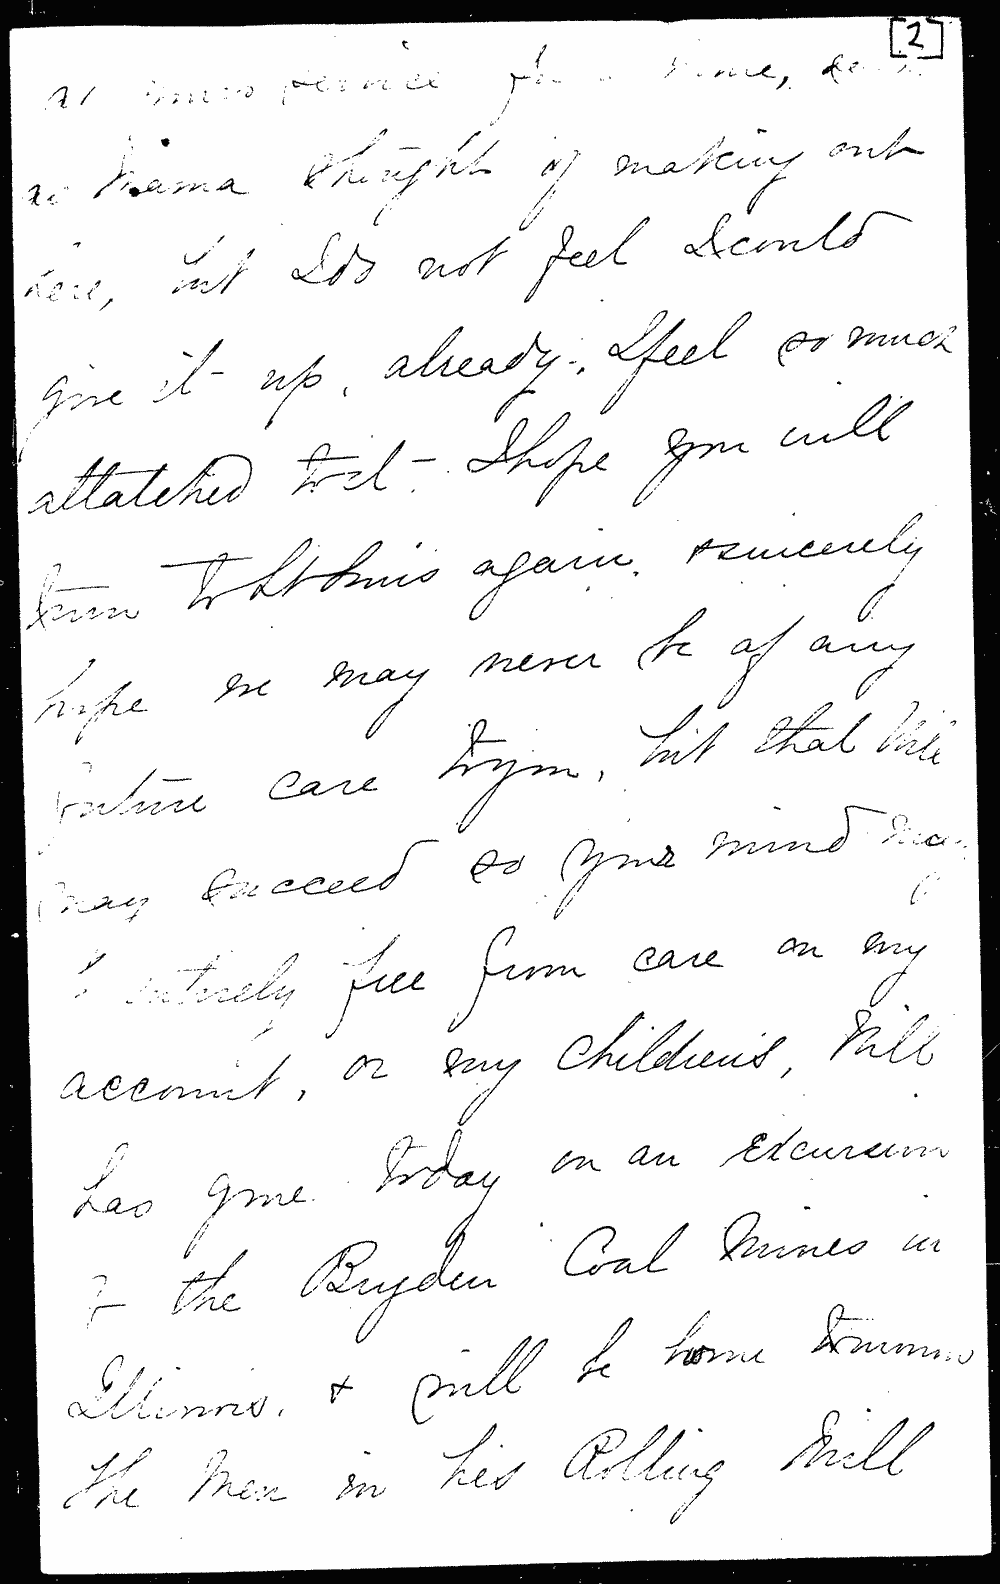 [2]
at service for a time,
as Mama thought of making out
here, but I do not feel I could
give it up, already, I feel so much
attatched to it - I hope you will
turn to St Louis again, & sincerely
hope we may never be of any
future care to you, but that Will
may succeed so your mind may
be entirely free from care on my
account, or my children's, Will
has gone today on an excursion
to the Bryden Coal Mines in
Illinois, & will be home tomorrow
The Men in his Rolling Mill